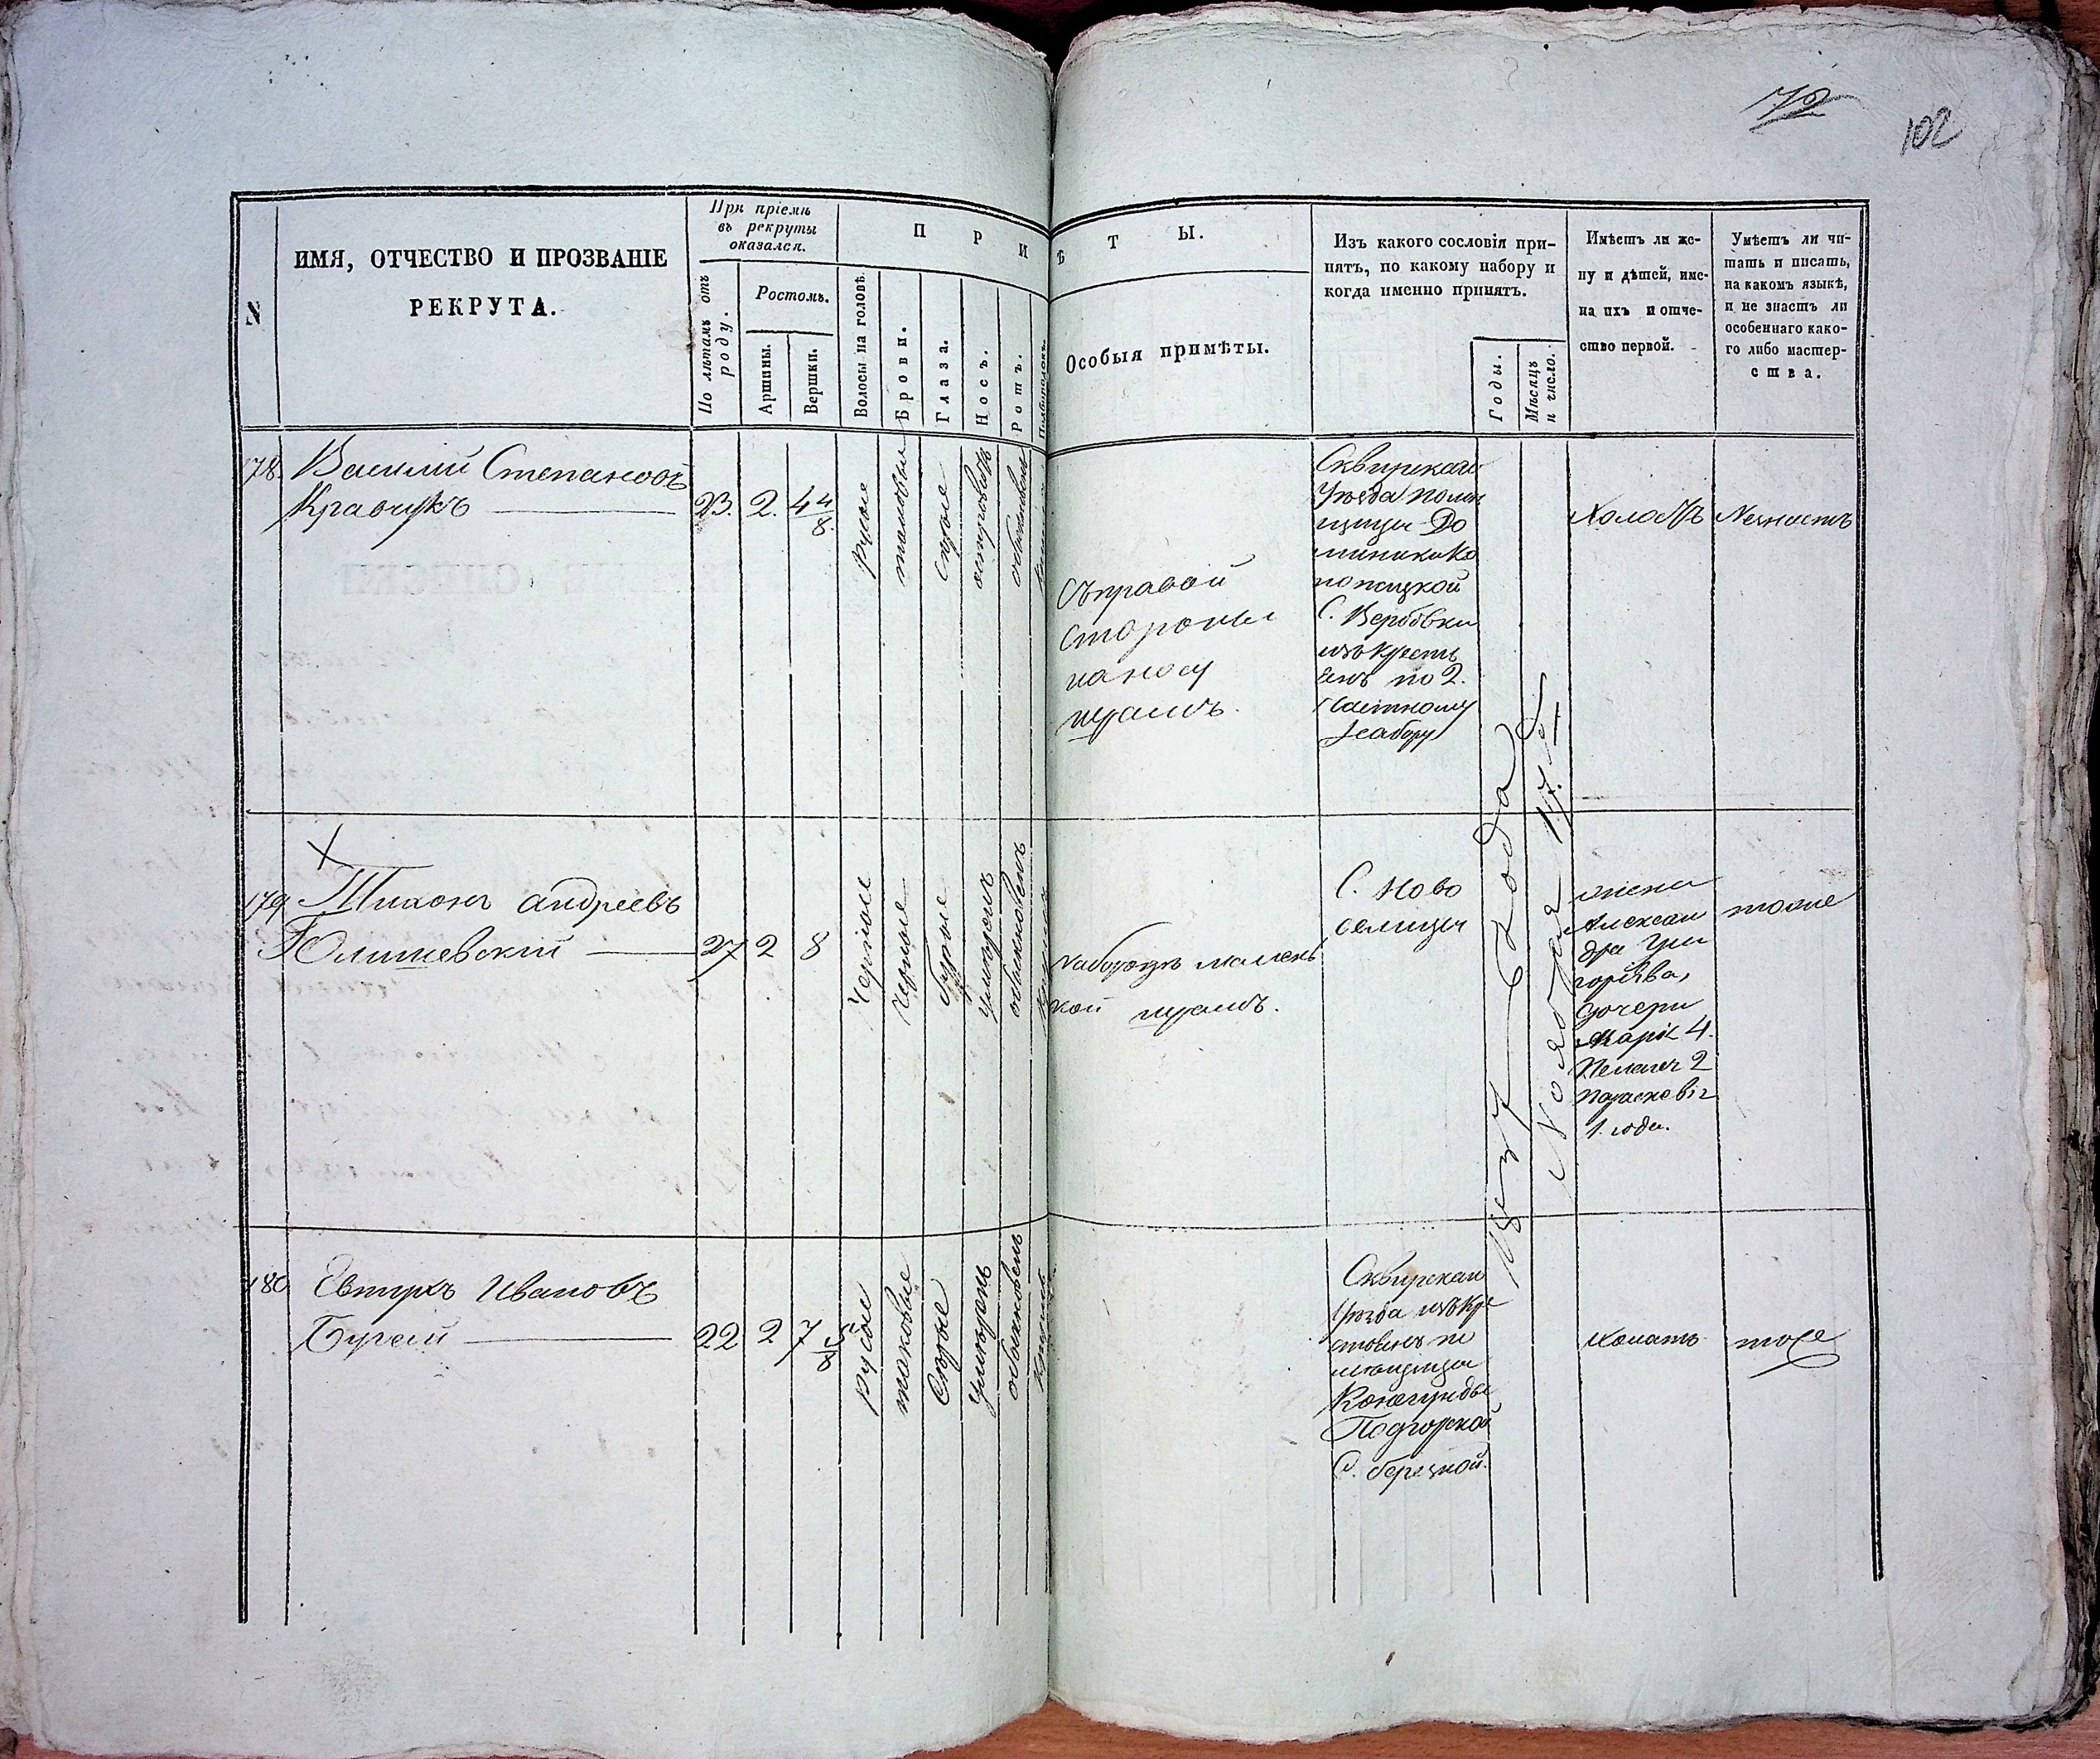 72
102
N
ИМЯ, ОТЧЕСТВО И ПРОЗВАНІЕ
РЕКРУТА.
При пріемѣ
въ рекруты
оказался.
По лѣтамъ отъ
роду.
Ростомъ.
Аршины.
Вершки.
ПРИ
Волосы на головѣ.
Брови.
Глаза.
Носъ.
Ротъ.
Подбородокъ.
ѢТЫ.
Особыя примѣты.
Изъ какого сословія при-
нятъ, по какому набору и
когда именно принятъ.
Годы.
Мѣсяцъ
и число.
Имѣетъ ли же-
ну и дѣтей, име-
на ихъ и отче-
ство первой.
Умѣетъ ли чи-
тать и писать,
на какомъ языкѣ,
и не знаетъ ли
особеннаго како-
го либо мастер-
ства.
178 Василій Степановъ
Кравчукъ
23. 2. 4 4/8
русые
таковыи
серые
островатъ
обыкновенъ
Съ правой
стороны
на носу
шрамъ.
Сквирскаго
Уезда помѣ
щицы До
миники Ко
С. Вербовки
изъ кресть
янъ по 2.
частному
набору
Холостъ
Незнаетъ
1837 года
Ноября 17.
179 Тихонъ Андреевъ
Юлишевскій
27 2 8
Черные
Черные
Серые
умѣренъ
обыкновенъ
на бороде малень
кой шрамъ.
С. Ново
селицы
жена
Алексан
дра Гри
горьева,
дочери
Марія 4.
Пелагея 2
Параскевія
1. года.
тоже
180 Евтухъ Ивановъ
Бугай
22 2 7 5/8
русые
таковые
Серые
Умѣренъ
обыкновенъ
Сквирскаго
Уезда изъ кре
стьянъ по
мѣщицы
Конегунды
Подгорской
С. Березной.
женатъ
тоже